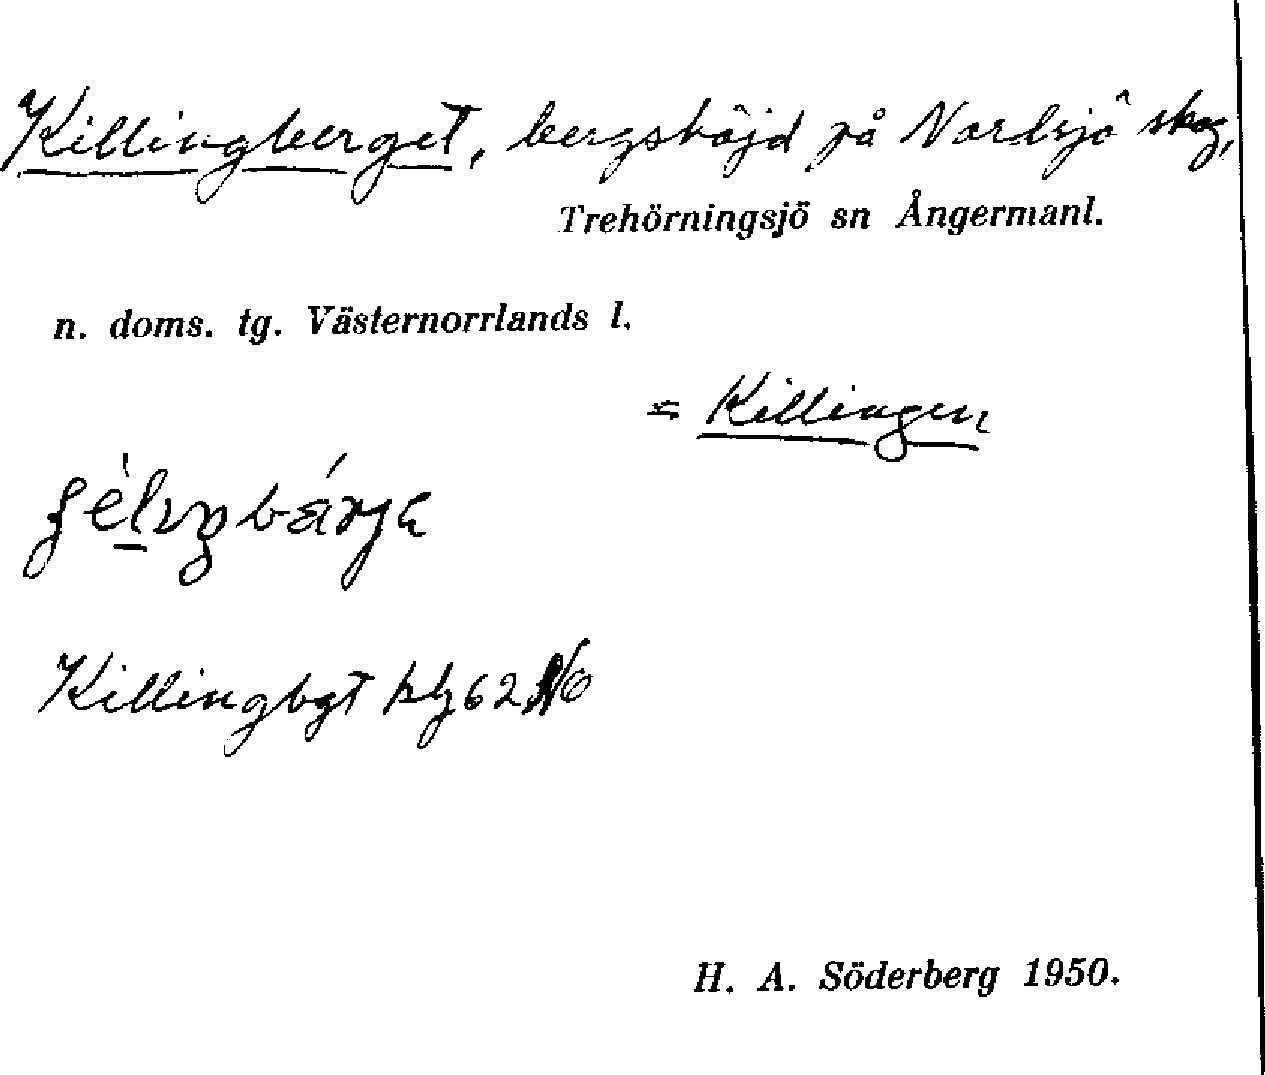 Killingberget, bergshöjd på Norlsjö skog,
Trehörningsjö sn Ångermanl.
n. doms. tg. Västernorrlands l.
= Killingen
Killingbgt kbl 62
H. A. Söderberg 1950.